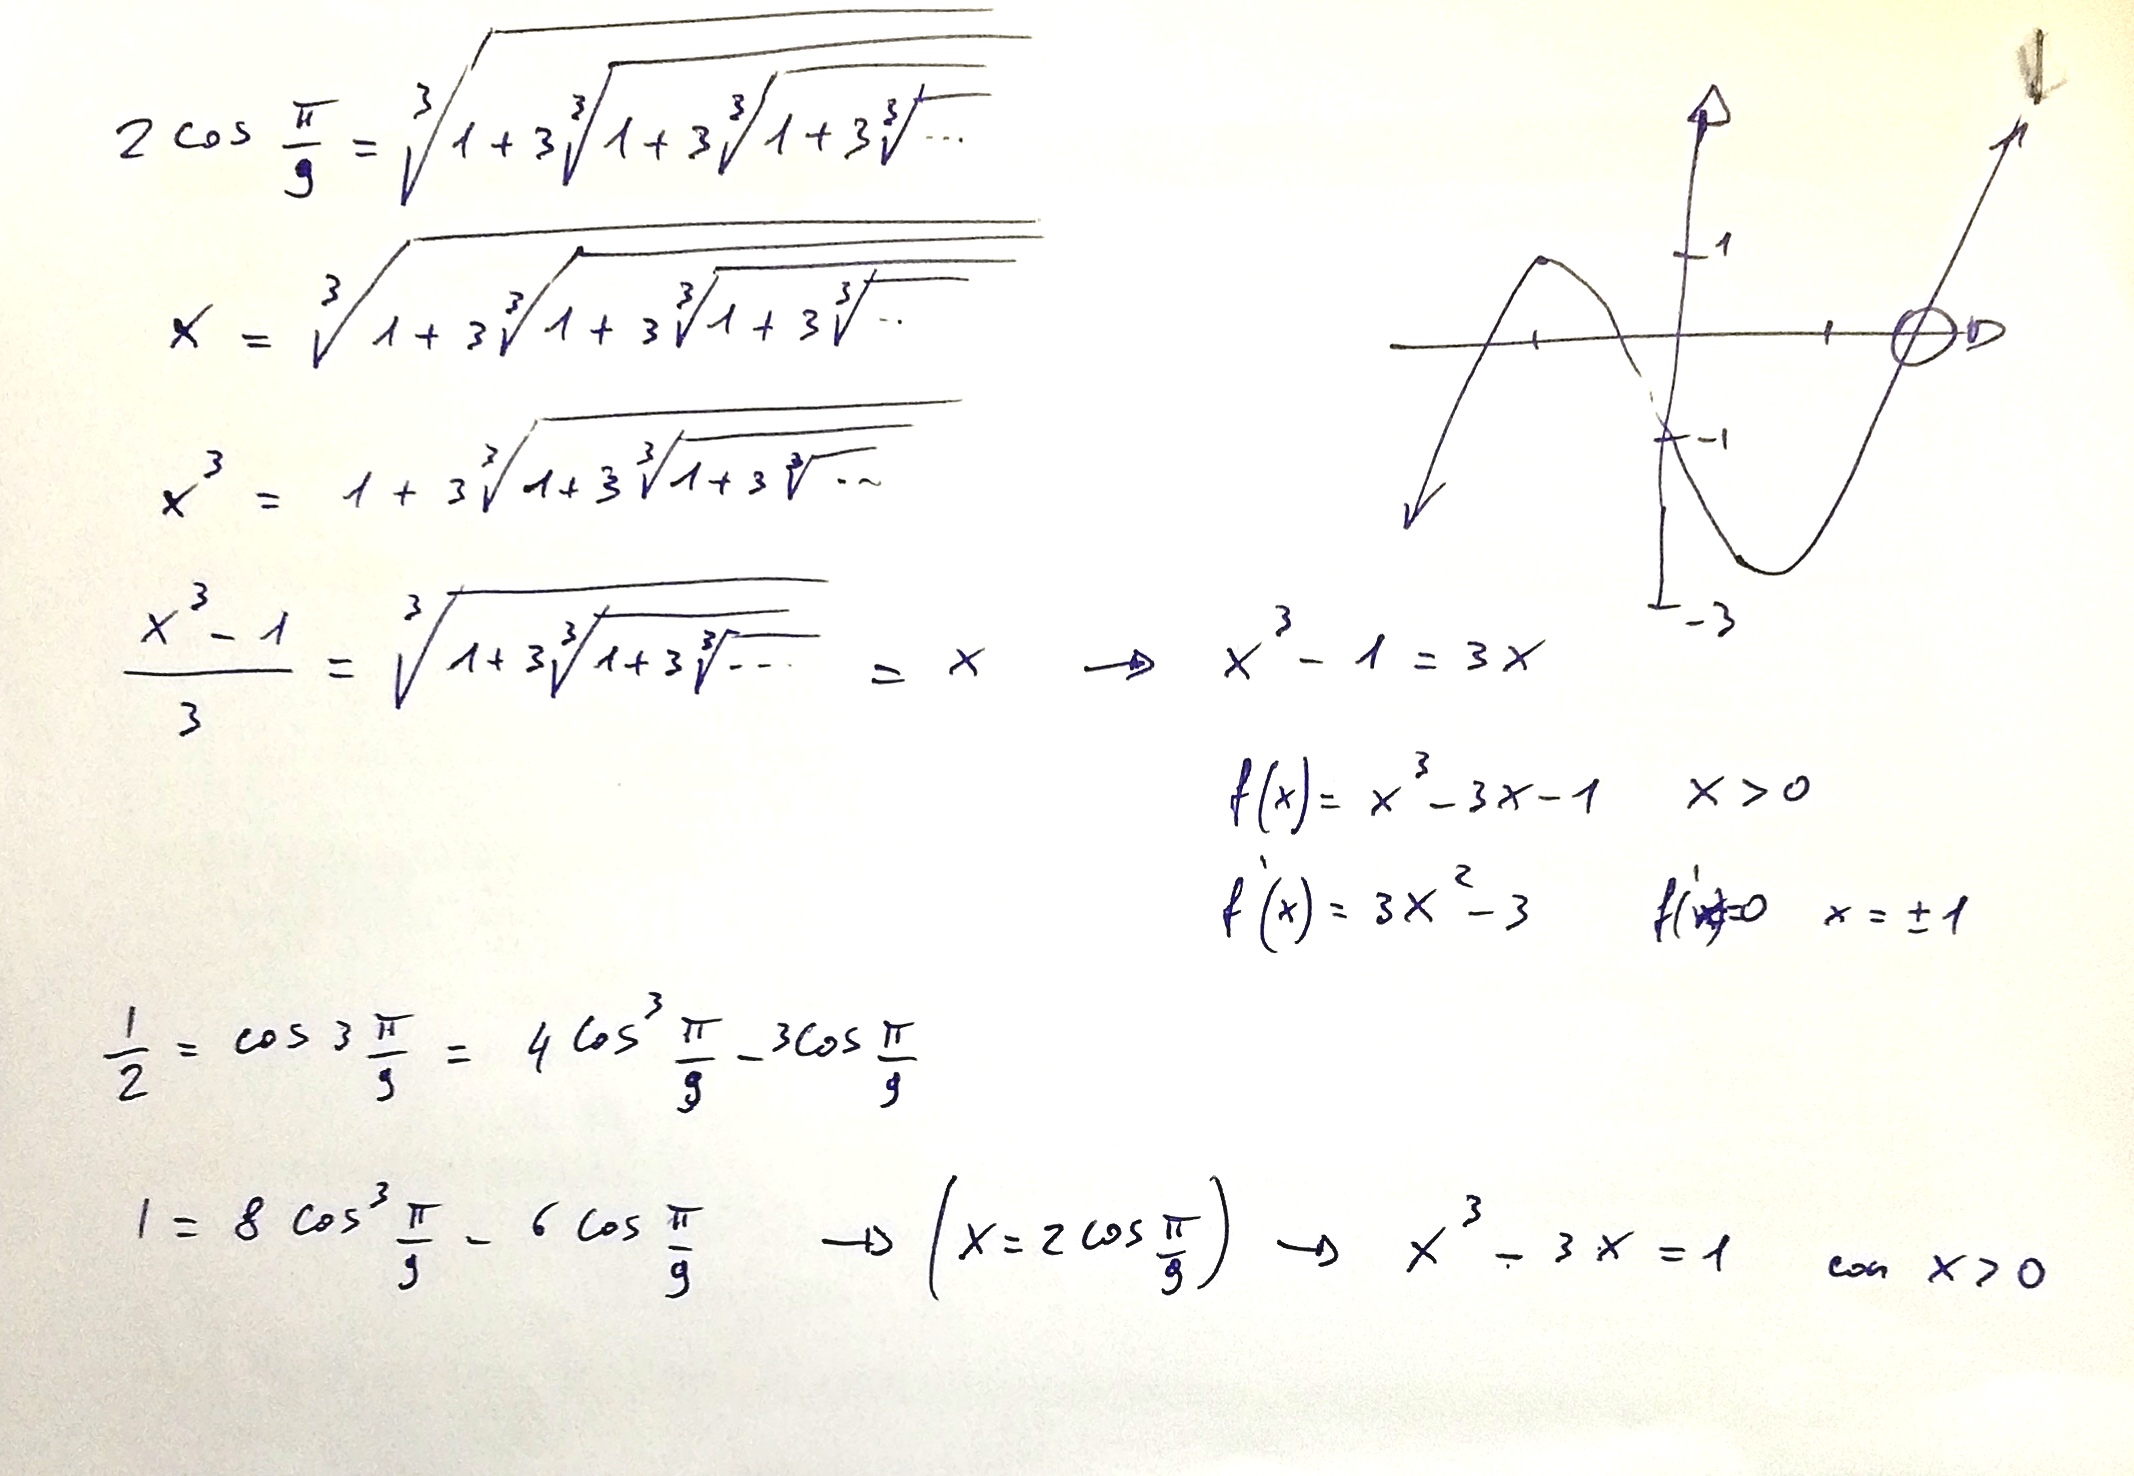 2 cos π/9 = ∛(1 + 3∛(1 + 3∛(1 + 3∛...
x = ∛(1 + 3∛(1 + 3∛(1 + 3∛..
x³ = 1 + 3∛(1 + 3∛(1 + 3∛...
(x³ - 1)/3 = ∛(1 + 3∛(1 + 3∛.... = x → x³ - 1 = 3x
1
-1
-3
f(x) = x³ - 3x - 1 x > 0
f'(x) = 3x² - 3 f'(x)=0 x = ± 1
1/2 = cos 3 π/9 = 4 cos³ π/9 - 3 cos π/9
1 = 8 cos³ π/9 - 6 cos π/9 → (x = 2 cos π/9) → x³ - 3x = 1 con x > 0